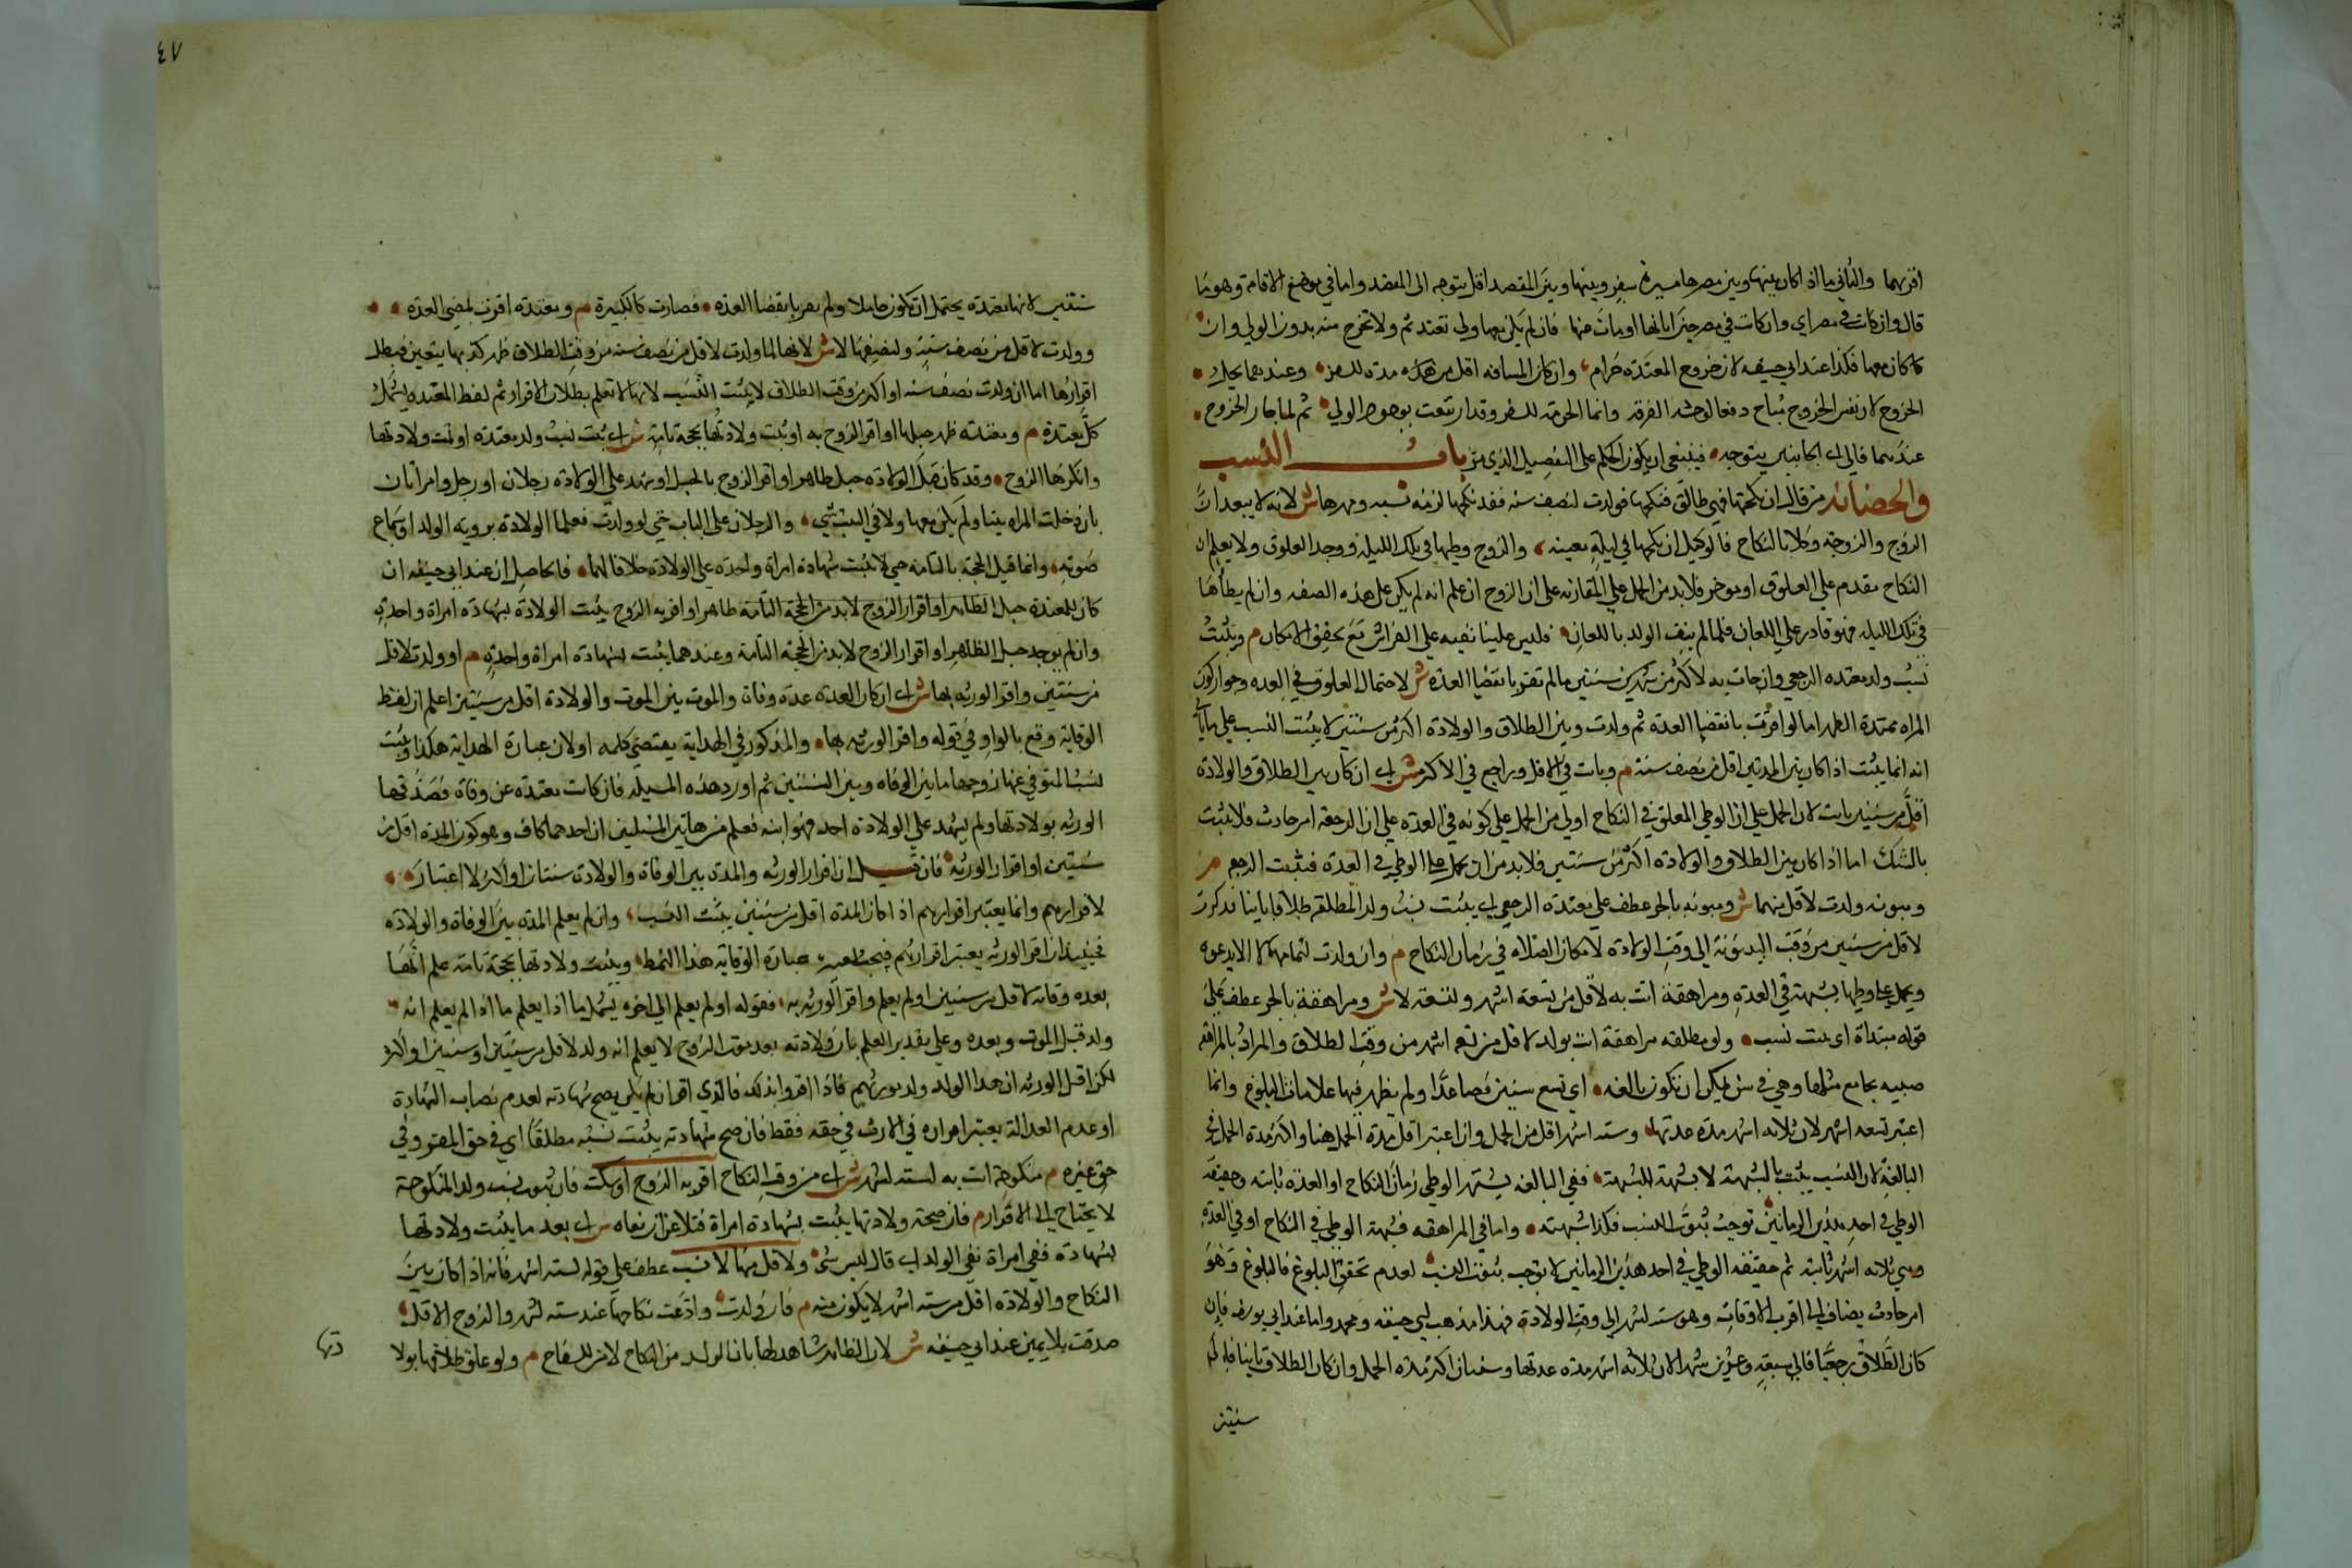 اقربهما والثاني ما اذا كان بينها وبين مصرها مسيرة سفر وبينها وبين المقصد اقل يتوجه الى المقصد واما في موضع الاقامة وهو ما
قال وان كانت في مصر اي وان كانت في مصر حين ابانها او مات عنها فان لم يكن معها ولي تعتد ثم ولا تخرج منه بدون الولي وان
كان معها فكذا عند ابي حنيفه لان خروج المعتدة حرام وان كان المسافه اقل من هذه مدة السفر وعندهما يحل
الخروج لان نفس الخروج مباح دفعا لوحشة الفرقة وانما الحرمة للسفر وقد ارتفعت بوجود الولي ثم لما جاز الخروج
عندهما فالى اي الجانبين يتوجه فينبغي ان يكون الحكم على التفصيل الذي مر باب النسب
والحضانة من قال ان نكحتها فهي طالق فنكحها فولدت لنصف سنه فقد نكحها لزمه نسبه ومهرها ش لانه لا يبعد ان
الزوج والزوجة وكلا بالنكاح فالوكيل ان نكحها في ليلة معينه والزوج وطيها في تلك الليله ووجد العلوق ولا يعلم ان
النكاح مقدم على العلوق او موخر فلا بد من الحمل على المقارنه على ان الزوج ان علم انه لم يكن على هذه الصفه وانه لم يطأها
في تلك الليله فهو قادر على اللعان فلما لم ينف الولد باللعان فليس علينا نفيه على الفراش مع تحقق الامكان م ويثبت
نسب ولد معتدة الرجعي وان جات به لاكثر من سنتين ما لم تقر بانقضا العدة ش لاحتمال العلوق في العدة وجواز كون
المراه ممتدة الطهر اما لو اقرت بانقضا العدة ثم ولدت وبين الطلاق والولادة اكثر من سنتين لا يثبت النسب على ما ياتي
انه انما يثبت اذا كان بين المدتين اقل من نصف سنة م وبانت في الاقل وراجع في الاكثر ش اي ان كان بين الطلاق والولادة
اقل من سنتين بانت لان الحمل على ان الوطي المعلق في النكاح اولى من الحمل على كونه في العدة على ان الرجعة امر حادث فلا يثبت
بالشك اما اذا كان بين الطلاق والولادة اكثر من سنتين فلا بد من ان يحمل على الوطي في العدة فثبت الرجع م
ومبتوتة ولدت لاقل منهما ش ومبتوتة بالجر عطف على معتدة الرجعي اي يثبت نسب ولد المطلقة طلاقا باينا فذكرت
لاقل من سنتين من وقت البينونة الى وقت الولادة لامكان في زمان النكاح م وان ولدت لتمامهما لا الا بدعوة
ويحمل على وطيها بشبهة في العدة ومراهقة اتت به لاقل من تسعة اشهر ولتسعة لا ش ومراهقة بالجر عطف على
قوله مبتداة اي يثبت نسب ولو مطلقه مراهقة اتت بولد لاقل من تسعة اشهر من وقت الطلاق والمراد بالمراهقه
صبيه يجامع مثلها وهي في سن يمكن ان تكون بالغه اي تسع سنين فصاعدا ولم يظهر فيها علامات البلوغ وانما
اعتبر تسعه اشهر لان ثلاثه اشهر مدة عدتها وسته اشهر اقل من الحمل وانما اعتبر اقل مدة الحمل هنا واكثر مدة الحمل في
البالغة لان النسب يثبت بالشبهة لا بشبهة الشبهة ففي البالغه يشتهر الوطي زمان النكاح او العدة ثابته وحقيقه
الوطي في احد هذين الزمانين توجب ثبوت النسب فكذا شبهته واما في المراهقه فشبهة الوطي في النكاح او في العدة
وهي ثلاثه اشهر ثابته ثم حقيقه الوطي في احد هذين الزمانين لا توجب ثبوت النسب لعدم تحقق البلوغ فالبلوغ وهو
امر حادث يضاف الى اقرب الاوقات وهو سته اشهر الى وقت الولادة فهذا مذهب ابي حنيفه ومحمد واما عند ابي يوسف فان
كان الطلاق رجعيا فالى سبعة وعشرين شهرا لان ثلاثه اشهر مدة عدتها وسنتان اكثر مدة الحمل وان كان الطلاق باينا فالى
سنتين
٤٧
سنتين لانها معتدة يحتمل ان تكون حاملا ولم تقر بانقضا العدة فصارت كالكبيرة م ومعتدة اقرت بمضي العدة
وولدت لاقل من نصف سنة ولنصفها لا ش لانها لما ولدت لاقل من نصف سنة من وقت الطلاق ظهر كذبها بيقين فبطل
اقرارها اما ان ولدت نصف سنه او اكثر من وقت الطلاق لا يثبت النسب لانها لا تعلم بطلان الاقرار ثم لفظ المعتدة يشمل
كل معتدة م ومعتدة ظهر حبلها او اقر الزوج به او يثبت ولادتها بحجة تامة ش اي يثبت نسب ولد معتدة او تمت ولادتها
وانكرها الزوج وقد كان قبل الولادة حبل ظاهر او اقر الزوج بالحبل او شهد على الولادة رجلان او رجل وامراتان
بان دخلت المراه بيتا ولم يكن معها ولا في البيت شي والرجلان على الباب حتى لو ولدت فعلما الولادة بروية الولد او سماع
صوته وانما قيل الحجة بالتامة حتى لا تثبت شهادة امراة واحدة على الولادة خلافا لهما فالحاصل ان عند ابي حنيفه ان
كان للمعتدة حبل الظاهر او اقرار الزوج لا بد من الحجة التامة ظاهر او اقر به الزوج يثبت الولادة بشهادة امراة واحدة
وان لم يوجد حبل الظاهر او اقرار الزوج لا بد من الحجة التامة وعندهما يثبت بشهادة امراة واحدة م او ولدت لاقل
من سنتين واقر الورثه بها ش اي ان كان العدة عدة وفاة والموت بين الموت والولادة اقل من سنتين اعلم ان لفظ
الوقاية وقع بالواو في قوله واقر الورثه بها والمذكور في الهداية يقتضي كلمه او لان عبارة الهداية هكذا ويثبت
نسب المتوفى عنها زوجها ما بين الوفاه وبين السنتين ثم اورد هذه المسيله فان كانت معتدة عن وفاة فصدقها
الورثه بولادتها ولم يشهد على الولادة احد فهو ابنه فعلم من هاتين المسلتين ان احدهما كاف وهو كون المدة اقل من
سنتين او اقرار الورثه فان قيل ان اقرار الورثه والمدة بين الوفاة والولادة سنتان او اكثر لا اعتبار
لاقرارهم وانما يعتبر اقرارهم اذا كان المدة اقل من سنتين يثبت النسب وان لم يعلم المدة بين الوفاة والولادة
فحينيذ ان اقر الورثه يعتبر اقرارهم فيجب عبارة الوقاية هذا النمط ويثبت ولادتها بحجة تامة علم انها
بعده وفاته لاقل من سنتين او لم يعلم واقر الورثه به فقوله او لم يعلم الى اخره يشمل ما اذا يعلم ما اذا لم يعلم انه
ولد قبل الموت وبعده وعلى تقدير العلم بان ولادته بعد موت الزوج لا يعلم انه ولد لاقل من سنتين او سنتين او اكثر
لكن اقر الورثه ان هذا الولد ولد مورثهم فاذا اقروا بذلك فالذي اقر ان لم يكن يصح شهادته لعدم نصاب الشهادة
او عدم العدالة يعتبر اقراره في الارث في حقه فقط فان صح شهادته يثبت نسبه مطلقا اي في حق المقر وفي
حق غيره م منكوحة اتت به لسته اشهر ش اي من وقت النكاح اقر به الزوج او سكت فان ثبوت نسب ولد المنكوحة
لا يحتاج الى الاقرار م فان جحد ولادتها يثبت بشهادة امراة فتلاعن ان نفاه ش اي بعد ما يثبت ولادتها
بشهادة ففي امراة نفي الولد اي قال ليس مني ولاقل منها لا نسب عطف على قوله لسته اشهر فانه اذا كان بين
النكاح والولادة اقل من سته اشهر لا يكون منه م فان ولدت وادعت نكاحها عند سته اشهر والزوج الاقل
صدقت بلا يمين عند ابي حنيفه ش لان الظاهر شاهد لها بان الولد من النكاح لا من السفاح م ولو علق طلاقها بولا
دتها